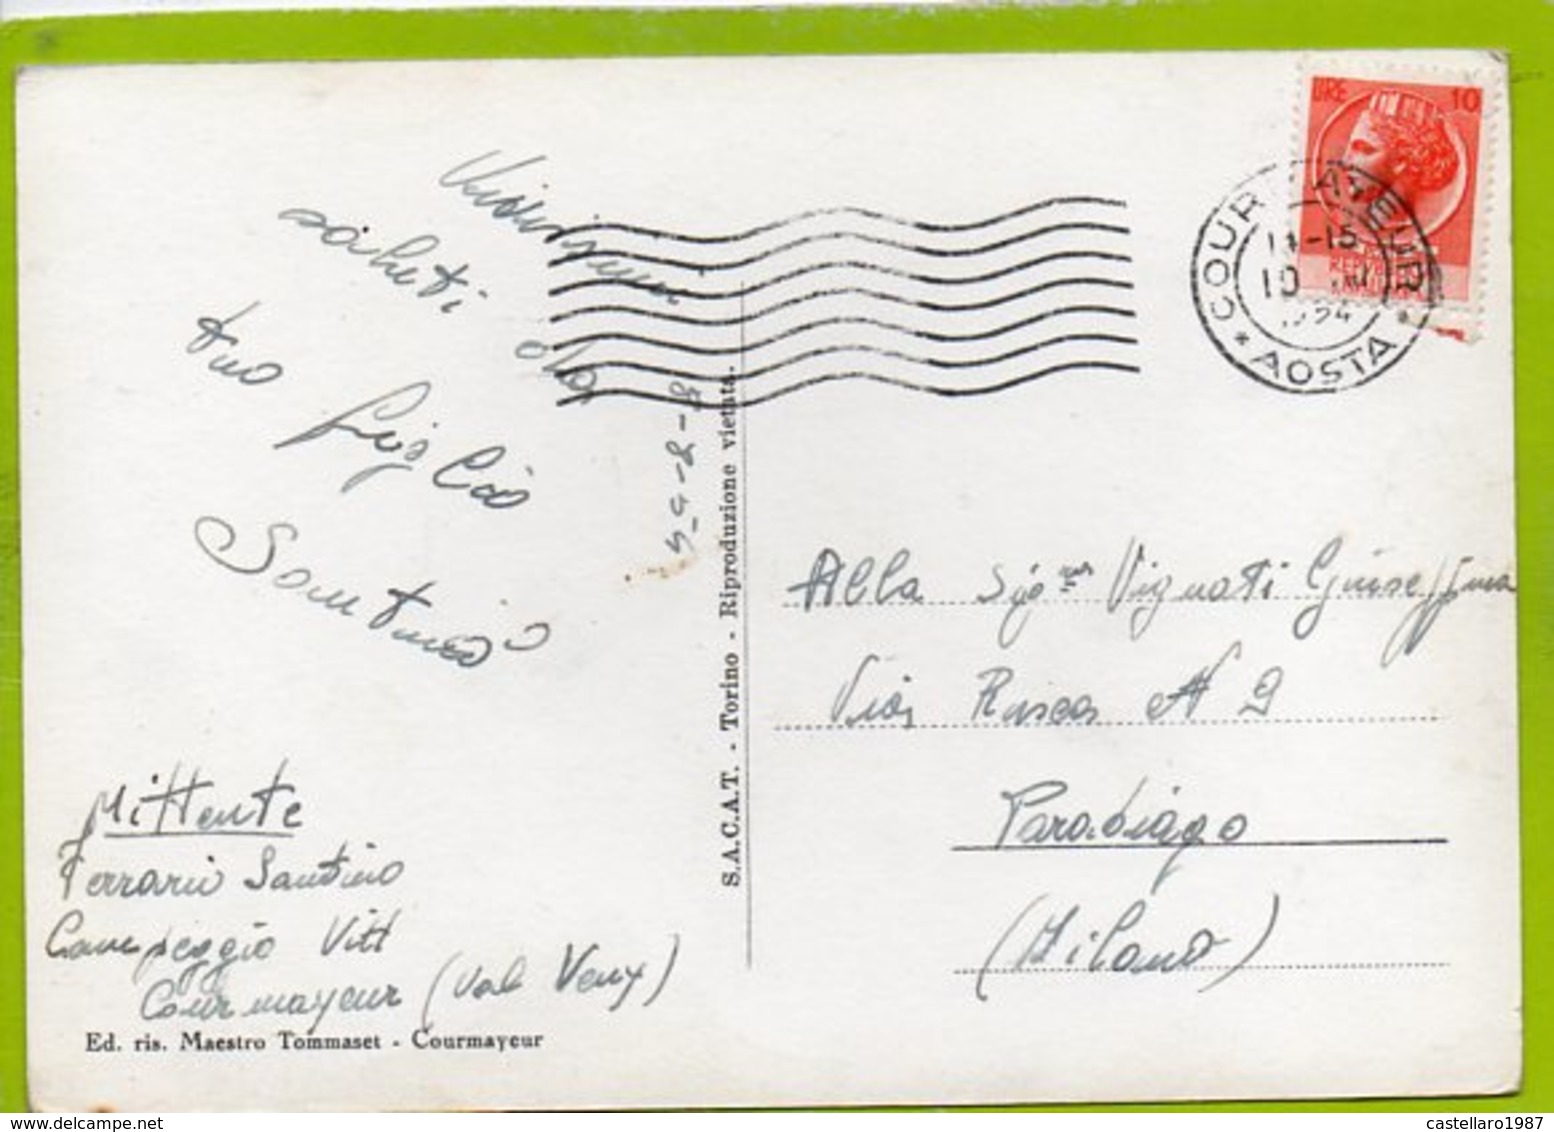 Vivissimi
saluti da
tuo figlio
Santino
8-8-54
Mittente
Ferrario Santino
Campeggio Vitt
Courmayeur (Val Veny)
Ed. ris. Maestro Tommaset - Courmayeur
S.A.C.A.T. - Torino - Riproduzione vietata.
LIRE 10
COURMAYEUR
1954
* AOSTA *
Alla Sig.na Vignati Giuseppina
Via Rusca N 9
Parabiago
(Milano)
castellaro1987